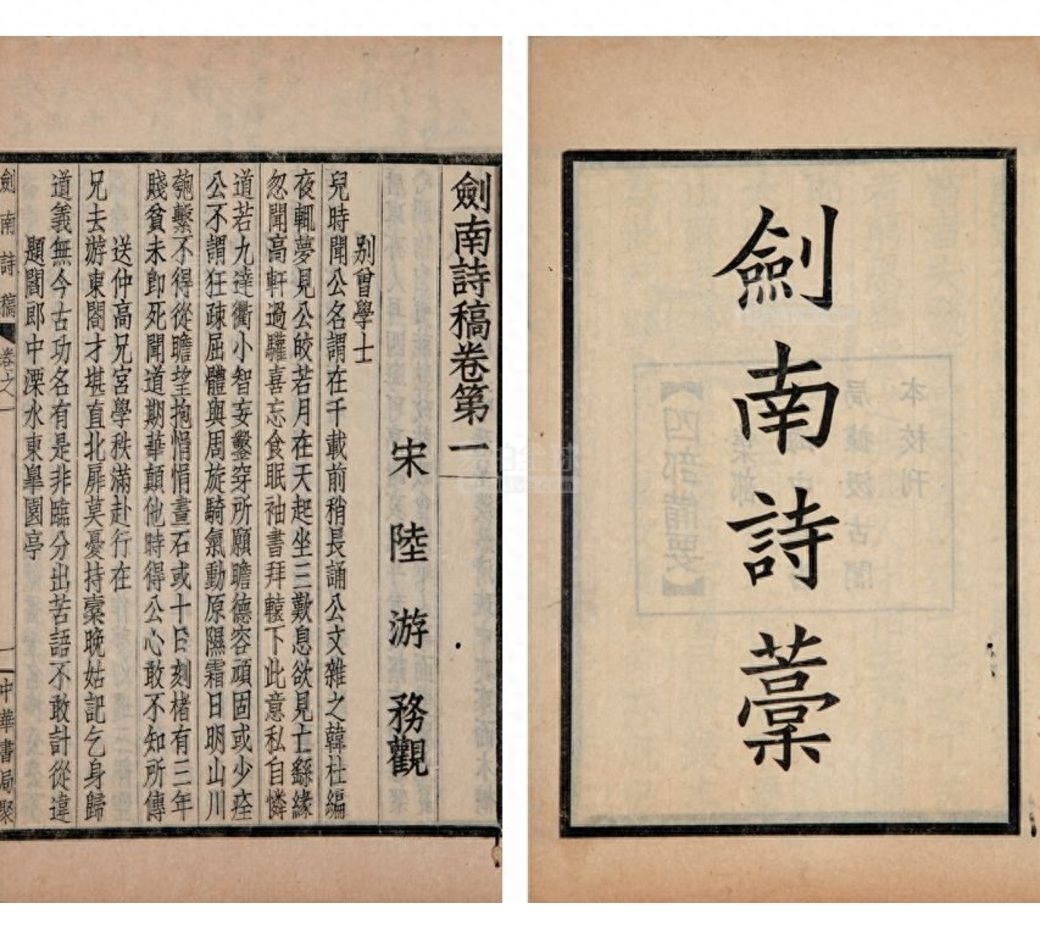 劍南詩藁
劍南詩稿卷第一
宋 陸 游 務觀
别曾學士
兒時聞公名謂在千載前稍長誦公文雜之韓杜編
夜輒夢見公皎若月在天起坐三歎息欲見亡繇緣
忽聞高軒過驩喜忘食眠袖書拜轅下此意私自憐
道若九達衢小智妄鑿穿所願瞻德容頑固或少痊
公不謂狂疎屈體與周旋騎氣動原隰霜日明山川
匏繫不得從瞻望抱悁悁畫石或十日刻楮有三年
賤貧未即死聞道期華顛他時得公心敢不知所傳
送仲高兄宮學秩滿赴行在
兄去游東閤才堪直北扉莫憂持橐晚姑記乞身歸
道義無今古功名有是非臨分出苦語不敢計從違
題閻郎中溧水東皐園亭
劍南詩稿 卷之一
中華書局聚
本校刊
局據汲古閣
【四部備要】